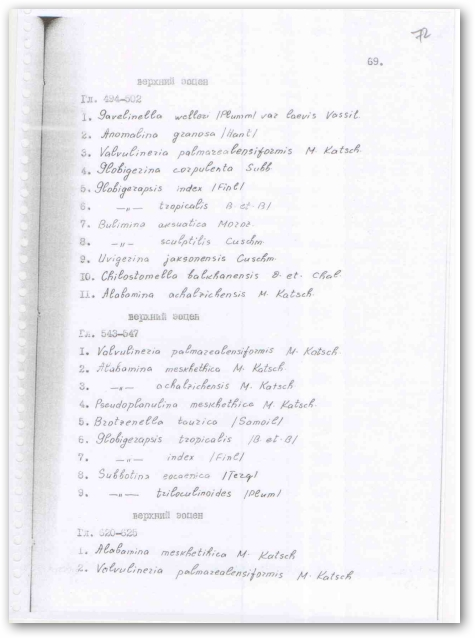 72
69.
верхний эоцен
Гл. 494-502
1. Gavelinella welleri /Plumm/ var laevis Vassil.
2. Anomalina granosa /Hant/
3. Valvulineria palmarealensiformis M. Katsch.
4. Globigerina corpulenta Subb
5. Globigerapsis index /Finl/
6. —„— tropicalis B. et. B/
7. Bulimina aksuatica Moroz.
8. —„— sculptilis Cuschm.
9. Uvigerina jaksonensis Cuschm.
10. Chilostomella balchanensis D. et. Chal.
11. Alabamina achalzichensis M. Katsch.
верхний эоцен
Гл. 543-547
1. Valvulineria palmarealensiformis M. Katsch.
2. Alabamina meskhethica M. Katsch.
3. —„— achalzichensis M. Katsch.
4. Pseudoplanulina meskhethica M. Katsch.
5. Brotzenella taurica /Samoil/
6. Globigerapsis tropicalis /B. et. B/
7. —„— index /Finl/
8. Subbotina eocaenica /Terq/
9. —„— triloculinoides /Plum/
верхний эоцен
Гл.
1. Alabamina meskhetihica M. Katsch
2. Valvulineria palmarealensiformis M. Katsch